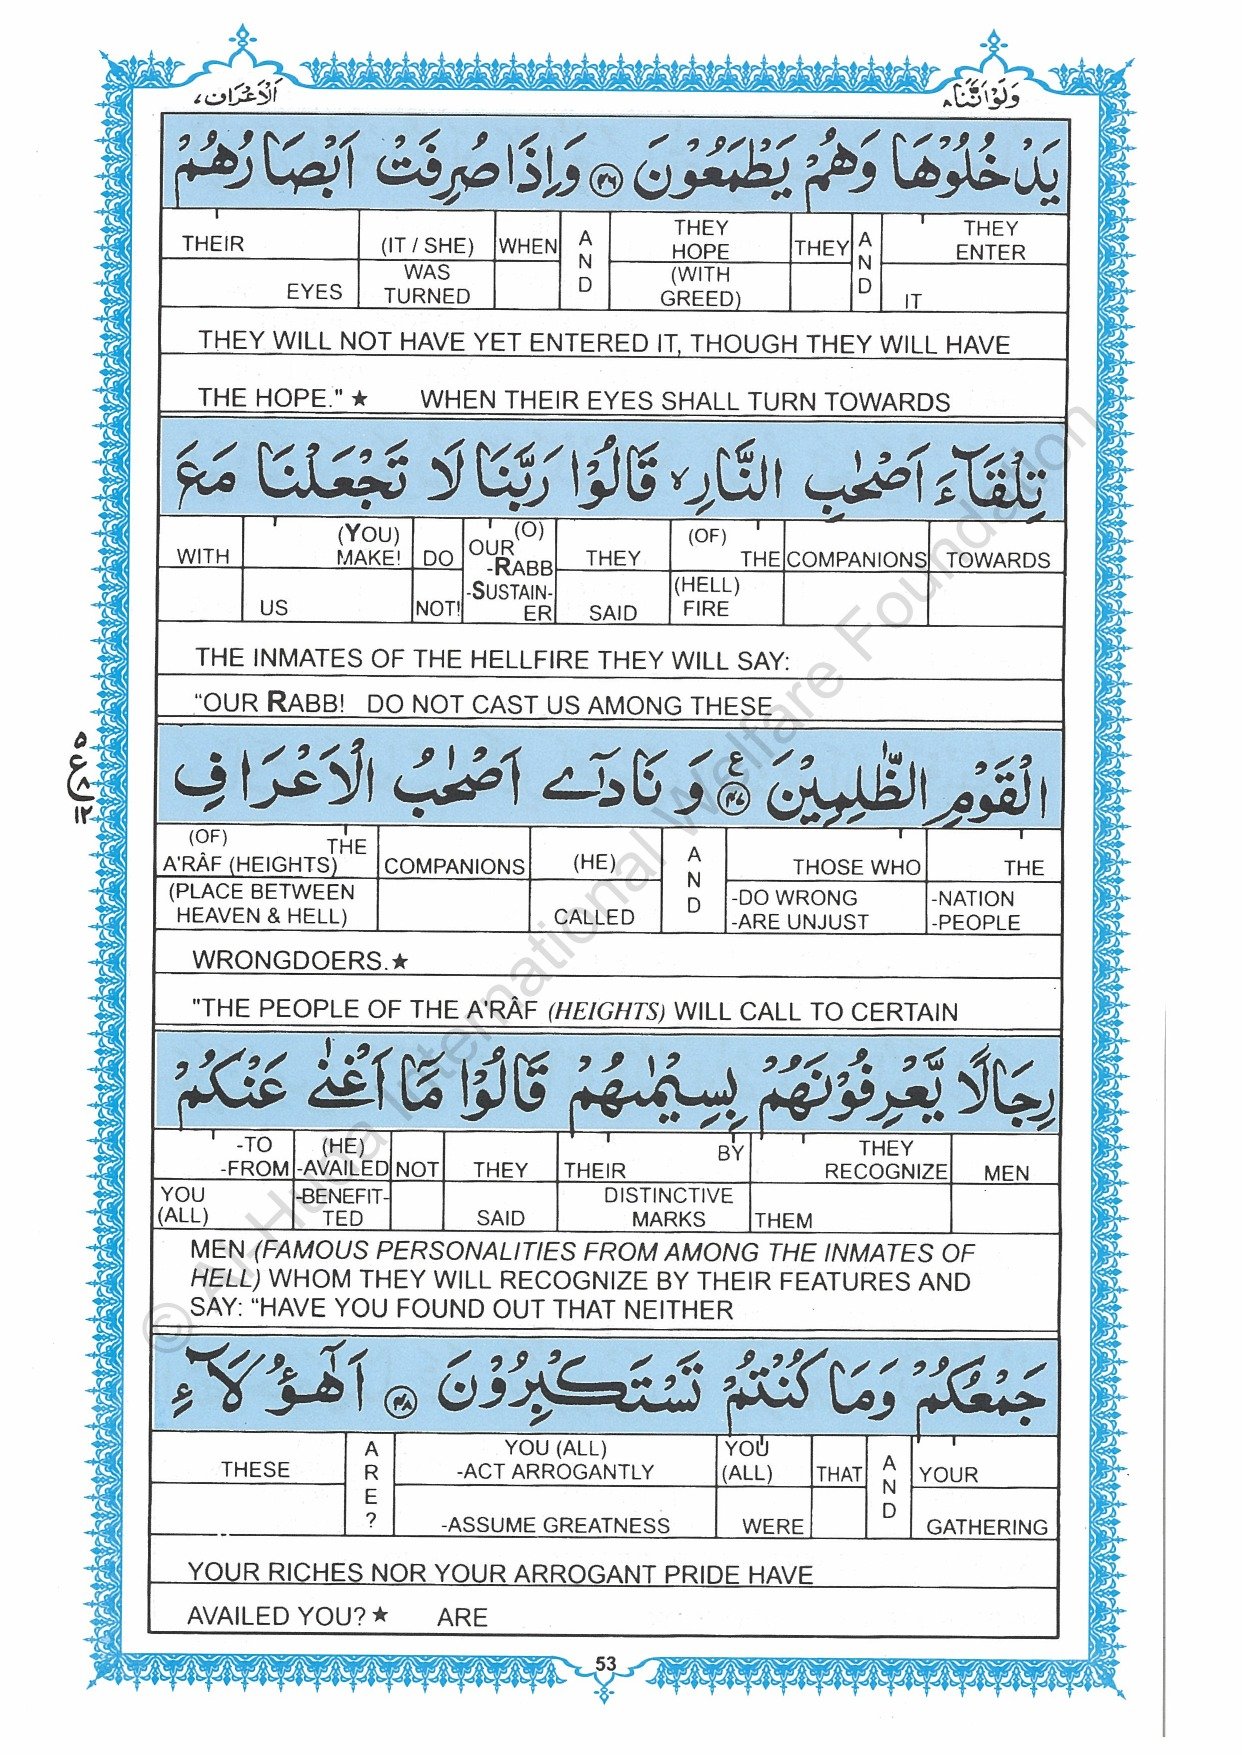 اَلْاَعْرَاف ٧
وَلَوْ اَنَّنَا ٨
يَدْخُلُوْهَا وَهُمْ يَطْمَعُوْنَ ﴿٤٦﴾ وَاِذَا صُرِفَتْ اَبْصَارُهُمْ
THEIR (IT / SHE) WHEN AND THEY HOPE THEY AND THEY ENTER
EYES WAS TURNED (WITH GREED) IT
THEY WILL NOT HAVE YET ENTERED IT, THOUGH THEY WILL HAVE
THE HOPE." ★ WHEN THEIR EYES SHALL TURN TOWARDS
تِلْقَآءَ اَصْحٰبِ النَّارِ ۙ قَالُوْا رَبَّنَا لَا تَجْعَلْنَا مَعَ
WITH (YOU) MAKE! DO (O) OUR -RABB THEY (OF) THE COMPANIONS TOWARDS
US NOT! -SUSTAIN-ER SAID (HELL) FIRE
THE INMATES OF THE HELLFIRE THEY WILL SAY:
“OUR RABB! DO NOT CAST US AMONG THESE
الْقَوْمِ الظّٰلِمِيْنَ ﴿٤٧﴾ ع وَ نَادٰٓى اَصْحٰبُ الْاَعْرَافِ
٥
ع
٨
١٢
(OF) THE A'RÂF (HEIGHTS) COMPANIONS (HE) AND THOSE WHO THE
(PLACE BETWEEN HEAVEN & HELL) CALLED -DO WRONG -ARE UNJUST -NATION -PEOPLE
WRONGDOERS.★
"THE PEOPLE OF THE A'RÂF (HEIGHTS) WILL CALL TO CERTAIN
رِجَالًا يَّعْرِفُوْنَهُمْ بِسِيْمٰىهُمْ قَالُوْا مَآ اَغْنٰى عَنْكُمْ
-TO -FROM (HE) -AVAILED NOT THEY THEIR BY THEY RECOGNIZE MEN
YOU (ALL) -BENEFIT-TED SAID DISTINCTIVE MARKS THEM
MEN (FAMOUS PERSONALITIES FROM AMONG THE INMATES OF
HELL) WHOM THEY WILL RECOGNIZE BY THEIR FEATURES AND
SAY: “HAVE YOU FOUND OUT THAT NEITHER
جَمْعُكُمْ وَمَا كُنْتُمْ تَسْتَكْبِرُوْنَ ﴿٤٨﴾ اَهٰٓؤُلَآءِ
THESE ARE? YOU (ALL) -ACT ARROGANTLY YOU (ALL) THAT AND YOUR
-ASSUME GREATNESS WERE GATHERING
YOUR RICHES NOR YOUR ARROGANT PRIDE HAVE
AVAILED YOU? ★ ARE
53
© Al-Huda International Welfare Foundation